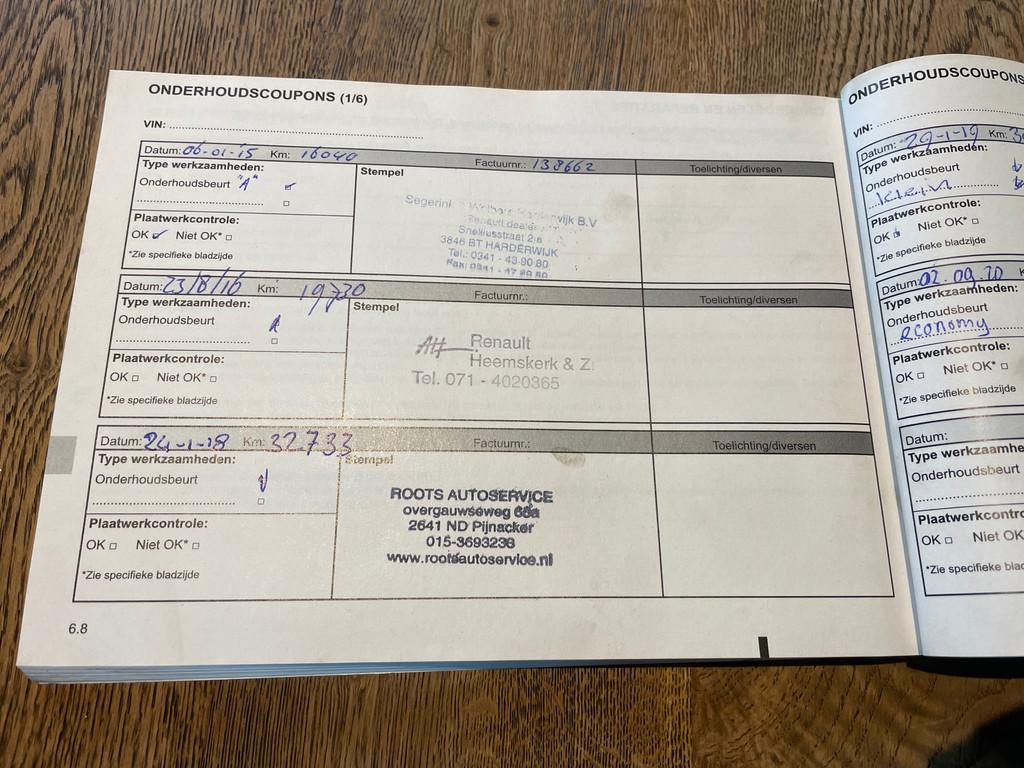 ONDERHOUDSCOUPONS (1/6)
VIN:
Datum: 06-01-15 Km: 16040 Factuurnr.: 138662 Toelichting/diversen
Type werkzaamheden:
Stempel
Onderhoudsbeurt "A"
Plaatwerkcontrole:
OK Niet OK*
*Zie specifieke bladzijde
Segerink Harderwijk B.V
Renault dealer
Snelliusstraat 2
3846 BT HARDERWIJK
Tel.: 0341 - 43 90 80
Fax: 0341 -
Datum: 23/8/16 Km: 19730 Factuurnr.: Toelichting/diversen
Type werkzaamheden:
Stempel
Onderhoudsbeurt A
Plaatwerkcontrole:
OK Niet OK*
*Zie specifieke bladzijde
AH Renault
Heemskerk & Z
Tel. 071 - 4020365
Datum: 24-1-18 Km: 32.733 Factuurnr.: Toelichting/diversen
Type werkzaamheden:
Stempel
Onderhoudsbeurt
Plaatwerkcontrole:
OK Niet OK*
*Zie specifieke bladzijde
ROOTS AUTOSERVICE
overgauwseweg
2641 ND Pijnacker
015-3693238
www.rootsautoservice.nl
6.8
ONDERHOUDSCOUPONS
VIN:
Datum: 29-1-19 Km: 3
Type werkzaamheden:
Onderhoudsbeurt
klein
Plaatwerkcontrole:
OK Niet OK*
*Zie specifieke bladzijde
Datum: 02.09.20 Km:
Type werkzaamheden:
Onderhoudsbeurt
economy
Plaatwerkcontrole:
OK Niet OK*
*Zie specifieke bladzijde
Datum:
Type werkzaamhe
Onderhoudsbeurt
Plaatwerkcontro
OK Niet OK
*Zie specifieke blad